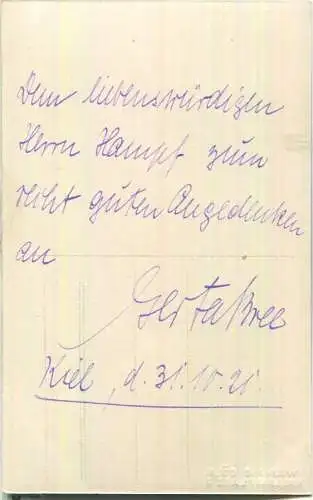 Dem liebenswürdigen
Herrn Hampf zum
recht guten Angedenken
an
Kiel, d. 31.10.21.